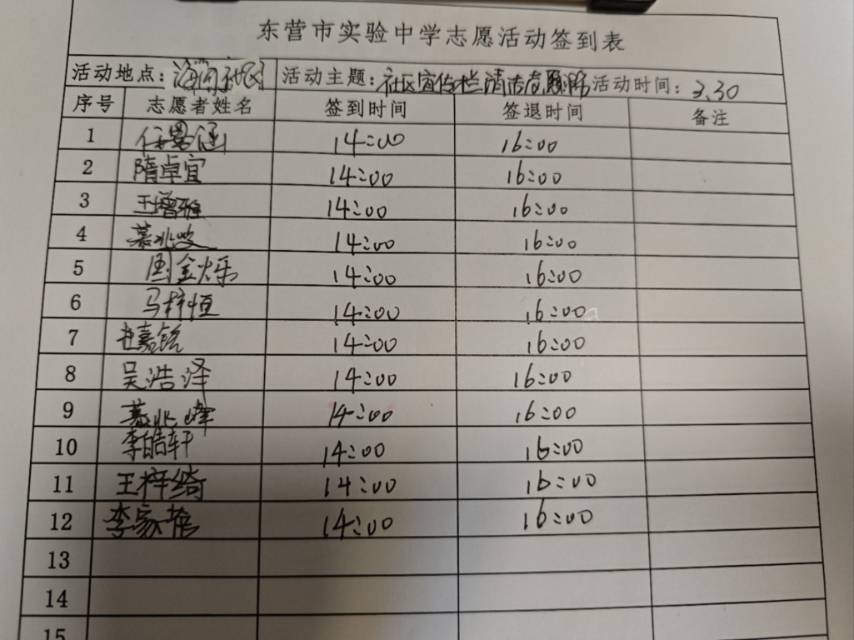 东营市实验中学志愿活动签到表
活动地点：海河社区 活动主题：社区宣传栏清洁志愿服务 活动时间：3.30
序号 志愿者姓名 签到时间 签退时间 备注
1 任思涵 14:00 16:00
2 隋卓宜 14:00 16:00
3 王增雅 14:00 16:00
4 綦兆 14:00 16:00
5 国金烁 14:00 16:00
6 马梓恒 14:00 16:00
7 嘉铭 14:00 16:00
8 吴浩泽 14:00 16:00
9 綦兆峰 14:00 16:00
10 李皓轩 14:00 16:00
11 王梓绮 14:00 16:00
12 李家 14:00 16:00
13
14
15